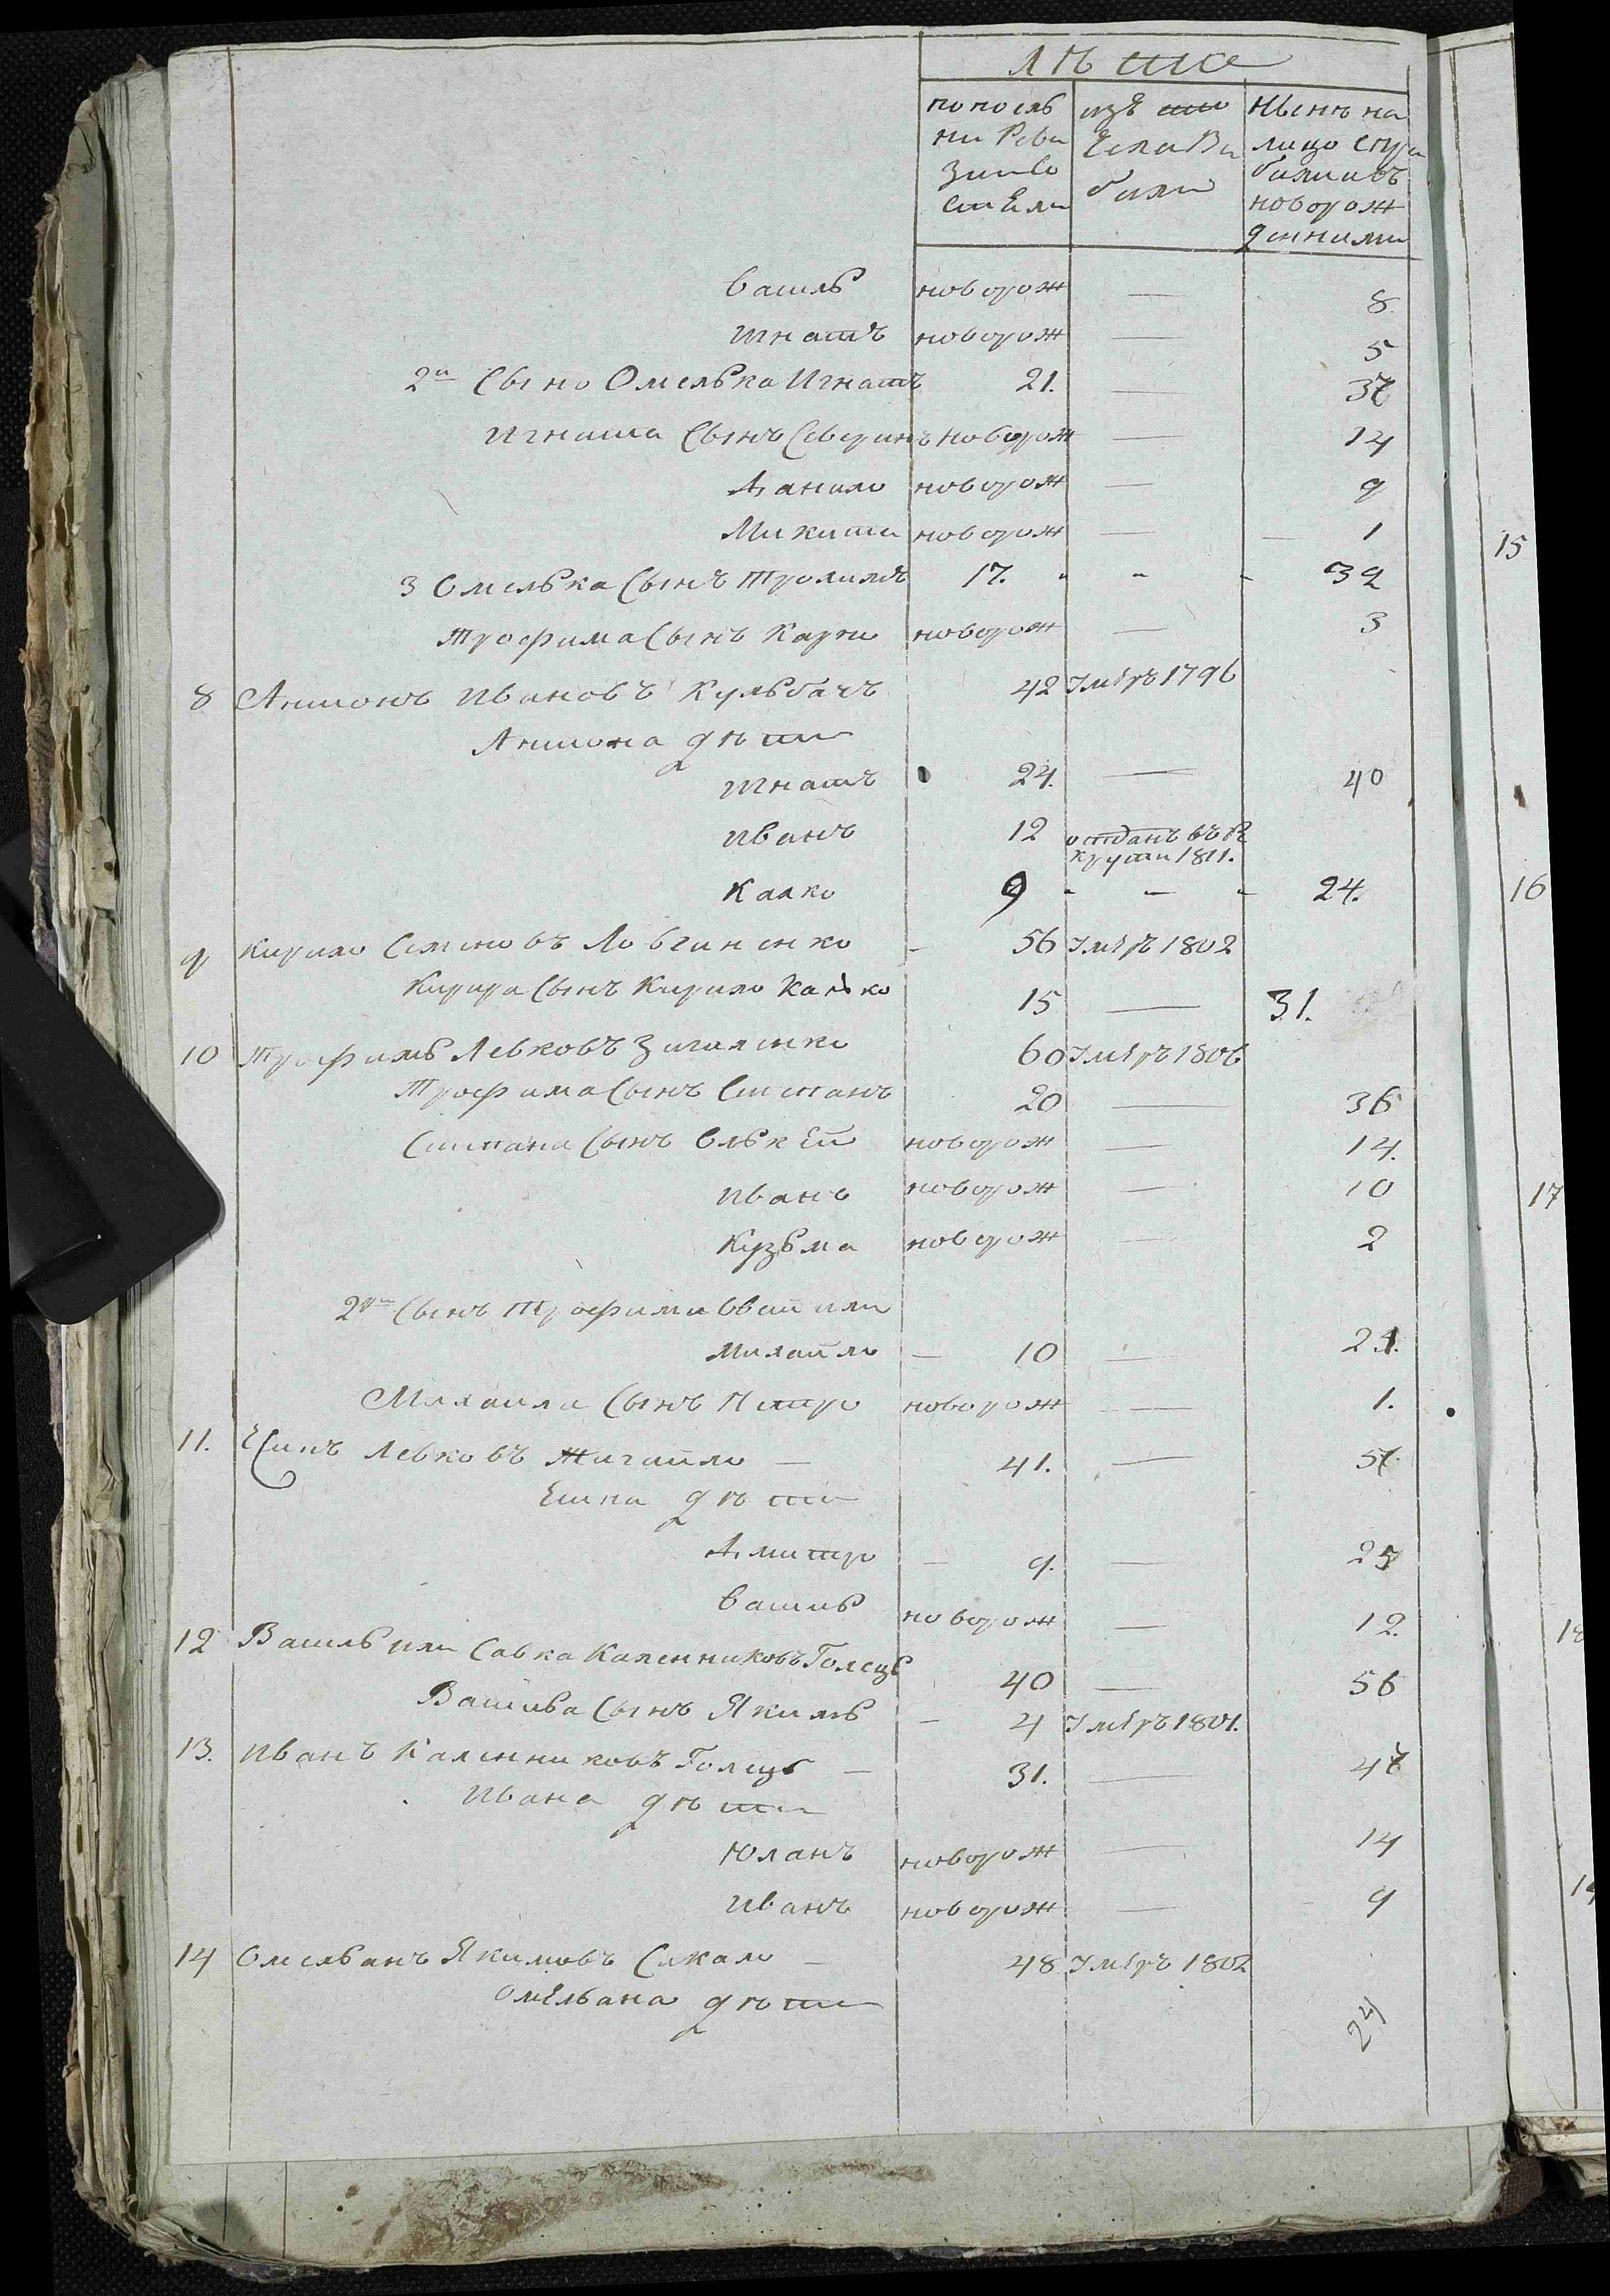 лѣта
по послѣ
ни Реви
зии со
стяли
изъ то
числа Вы
были
Нынѣ на
лицо съ при
былии въ
новорож
денними
Василь новорож — 8.
Игнатъ новорож — 5
2й Сынъ Омелька Игнатъ 21. — 37
Игната Сынъ Северинъ новорож — 14
Данило новорож — 9
Микита новорож — 1
3 Омелька Сынъ Трохимъ 17. - - - 32
Трофима Сынъ Карпо новорож — 3
8 Антонъ Ивановъ Кульбачъ 42 Умѣръ 1796
Антона дѣти
Игнатъ 24. — 40
Иванъ 12 отданъ въ Ре
круты 1811.
Калко 9 - - - 24.
9 Кирило Семеновъ Ловгиненко - 56 Умѣръ 1802
Кирила Сынъ Кирило Калко 15 — 31.
10 Трофимъ Левковъ Зигаленко 60 Умѣръ 1806
Трофима Сынъ Степанъ 20 — 36
Степана Сынъ Олькей новорож — 14.
Иванъ новорож — 10
Кузьма новорож — 2
2й Сынъ Трофима Евтит или
Михайло — 10 — 24.
Михаила Сынъ Петро новорож — 1.
11. Есипъ Левковъ Жигайло — 41. — 57
Есипа дѣти
Дмитро — 9. — 25
Василь новорож — 12.
12 Василь или Савка Каленниковъ Голецъ 40 — 56
Василя Сынъ Якимъ — 4 Умѣръ 1801.
13. Иванъ Каленниковъ Голецъ — 31. — 47
Ивана дѣти
Юханъ новорож — 14
Иванъ новорож — 9
14 Омельянъ Якимовъ Сикало — 48 Умѣръ 1802
Омельяна дѣти
24
15
16
17